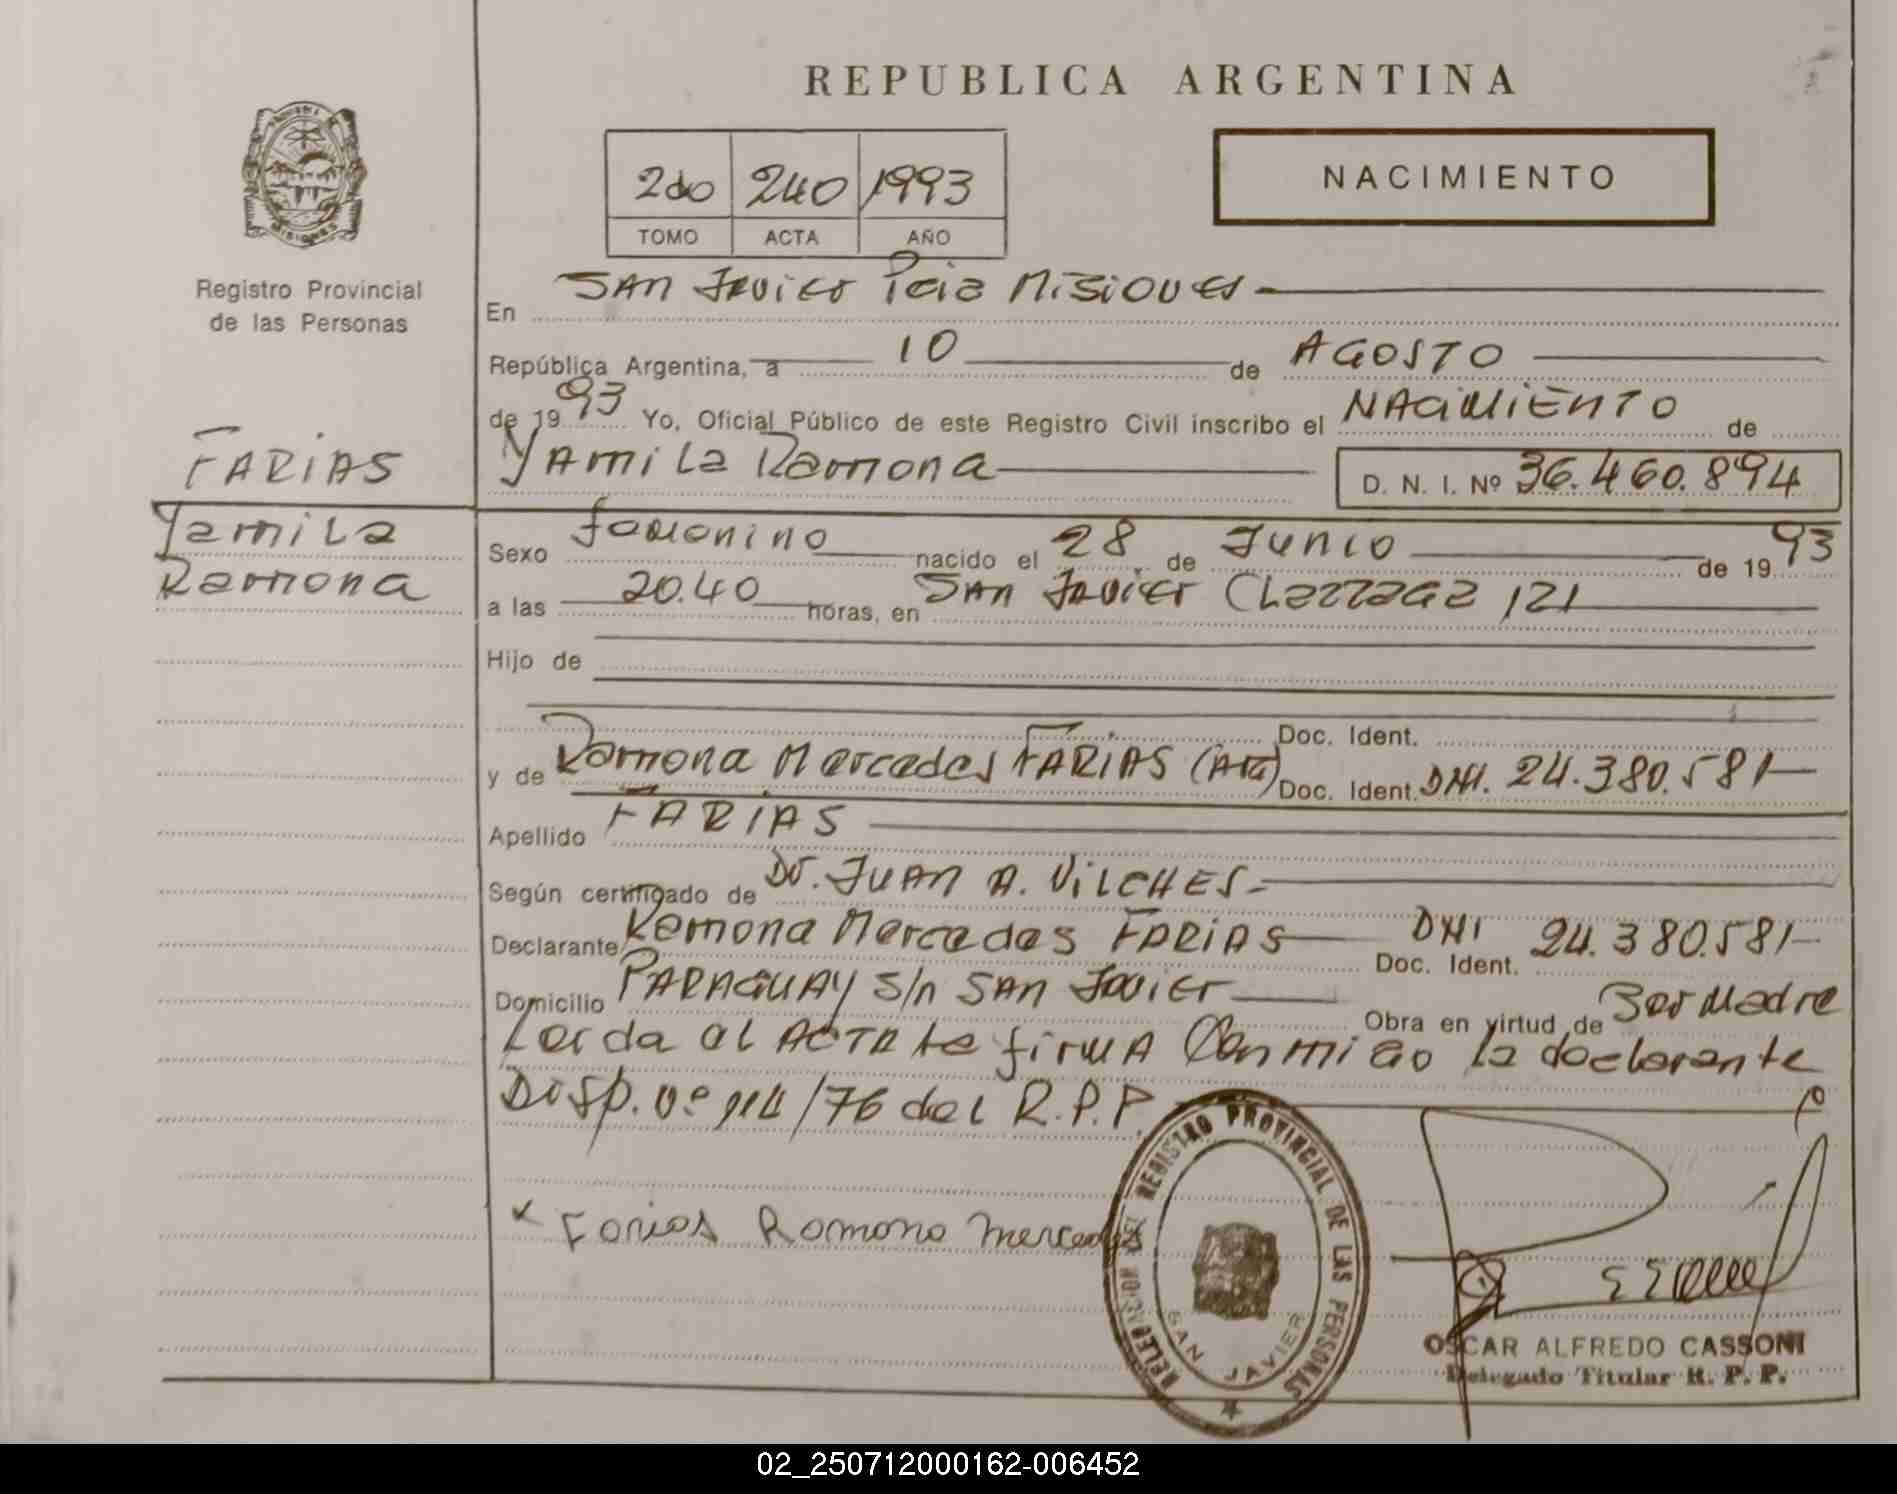 REPUBLICA ARGENTINA
2do 240 1993
TOMO ACTA AÑO
NACIMIENTO
MISIONES
Registro Provincial
de las Personas
FARIAS
Yamila
Ramona
En San Javier Pcia Misiones
República Argentina, a 10 de AGOSTO
de 1993 Yo, Oficial Público de este Registro Civil inscribo el NACIMIENTO de
Yamila Ramona D. N. I. Nº 36.460.894
Sexo femenino nacido el 28 de Junio de 1993
a las 20.40 horas, en San Javier 121
Hijo de
Doc. Ident.
y de Ramona Mercedes FARIAS Doc. Ident. DNI. 24.380.581
Apellido FARIAS
Según certificado de Dr. JUAN A. VILCHES
Declarante Ramona Mercedes FARIAS DNI Doc. Ident. 24.380.581
Domicilio PARAGUAY s/n SAN Javier Obra en virtud de Ser Madre
Leida el ACTA la firma Conmigo la declarante
Disp. nº /76 del R.P.P.
x Farias Ramona Mercedes
REGISTRO PROVINCIAL DE LAS PERSONAS
SAN JAVIER
OSCAR ALFREDO CASSONI
Delegado Titular R. P. P.
02_250712000162-006452